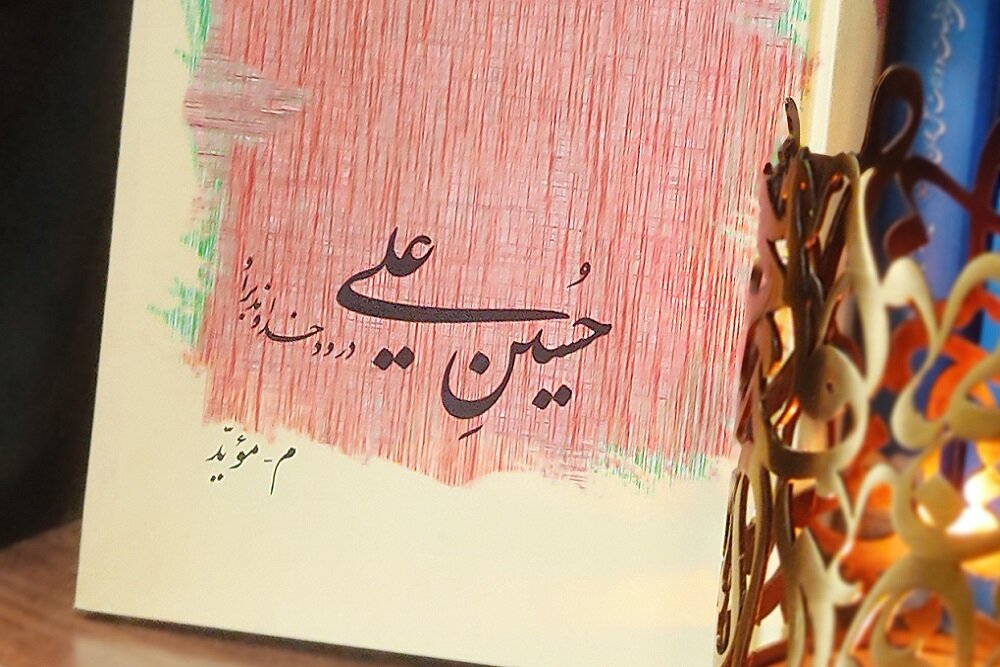 حُسینِ علی
درود خداوند بر اُ
م - مؤیّد